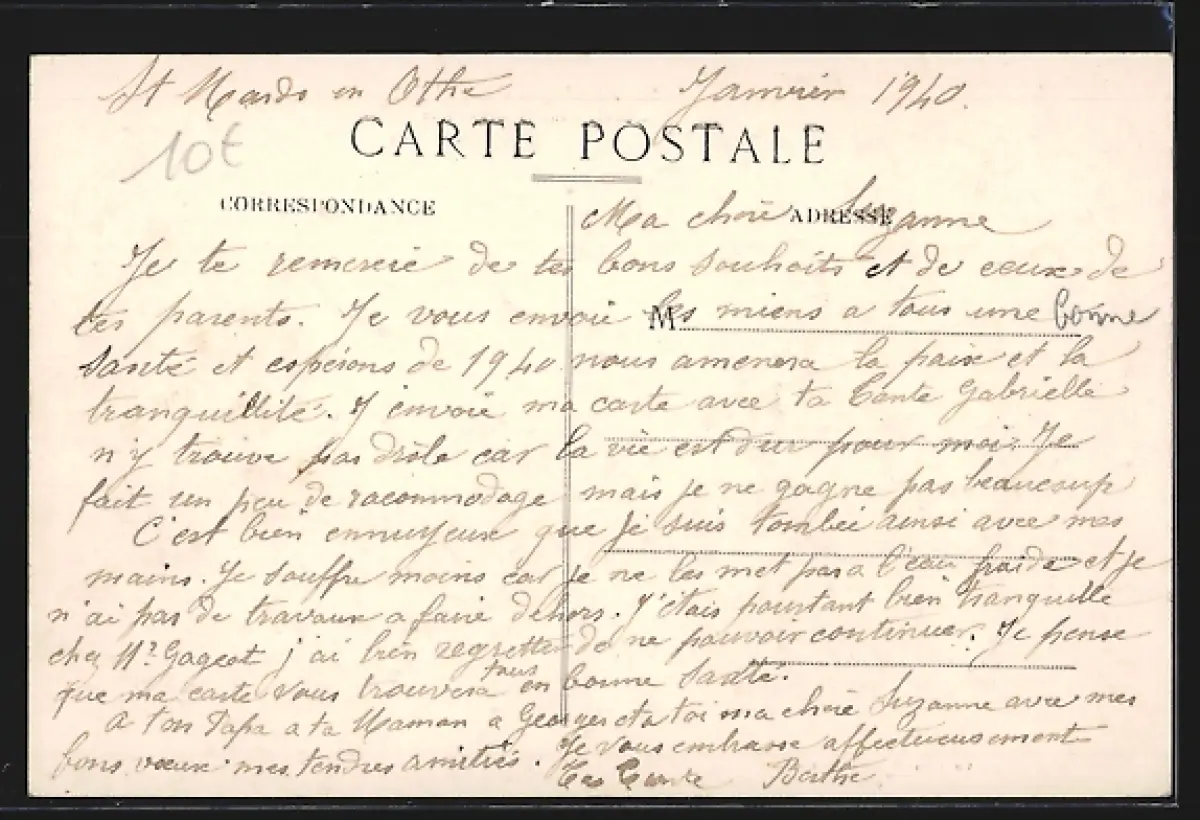 St Mards en Othe Janvier 1940.
10€
CARTE POSTALE
CORRESPONDANCE
ADRESSE
Ma chère Suzanne
Je te remercie de tes bons souhaits et de ceux de
tes parents. Je vous envoie les miens a tous une bonne
M
santé et espérons de 1940 nous amenera la paix et la
tranquillité. J envoie ma carte avec ta tante Gabrielle
n'y trouve pas drôle car la vie est dur pour moi. Je
fait un peu de racommodage mais je ne gagne pas beaucoup
C'est bien ennuyeux que je suis tombée ainsi avec mes
mains. Je souffre moins car je ne les met pas a l'eau froide et je
n'ai pas de travaux a faire dehors. J'étais pourtant bien tranquille
chez Mr Gageot j'ai bien regretter de ne pouvoir continuer. Je pense
que ma carte vous trouvera tous en bonne santé.
A ton Papa a ta Maman a Georges et a toi ma chère Suzanne avec mes
bons vœux mes tendres amitiés. Je vous embrasse affectueusement
Berthe